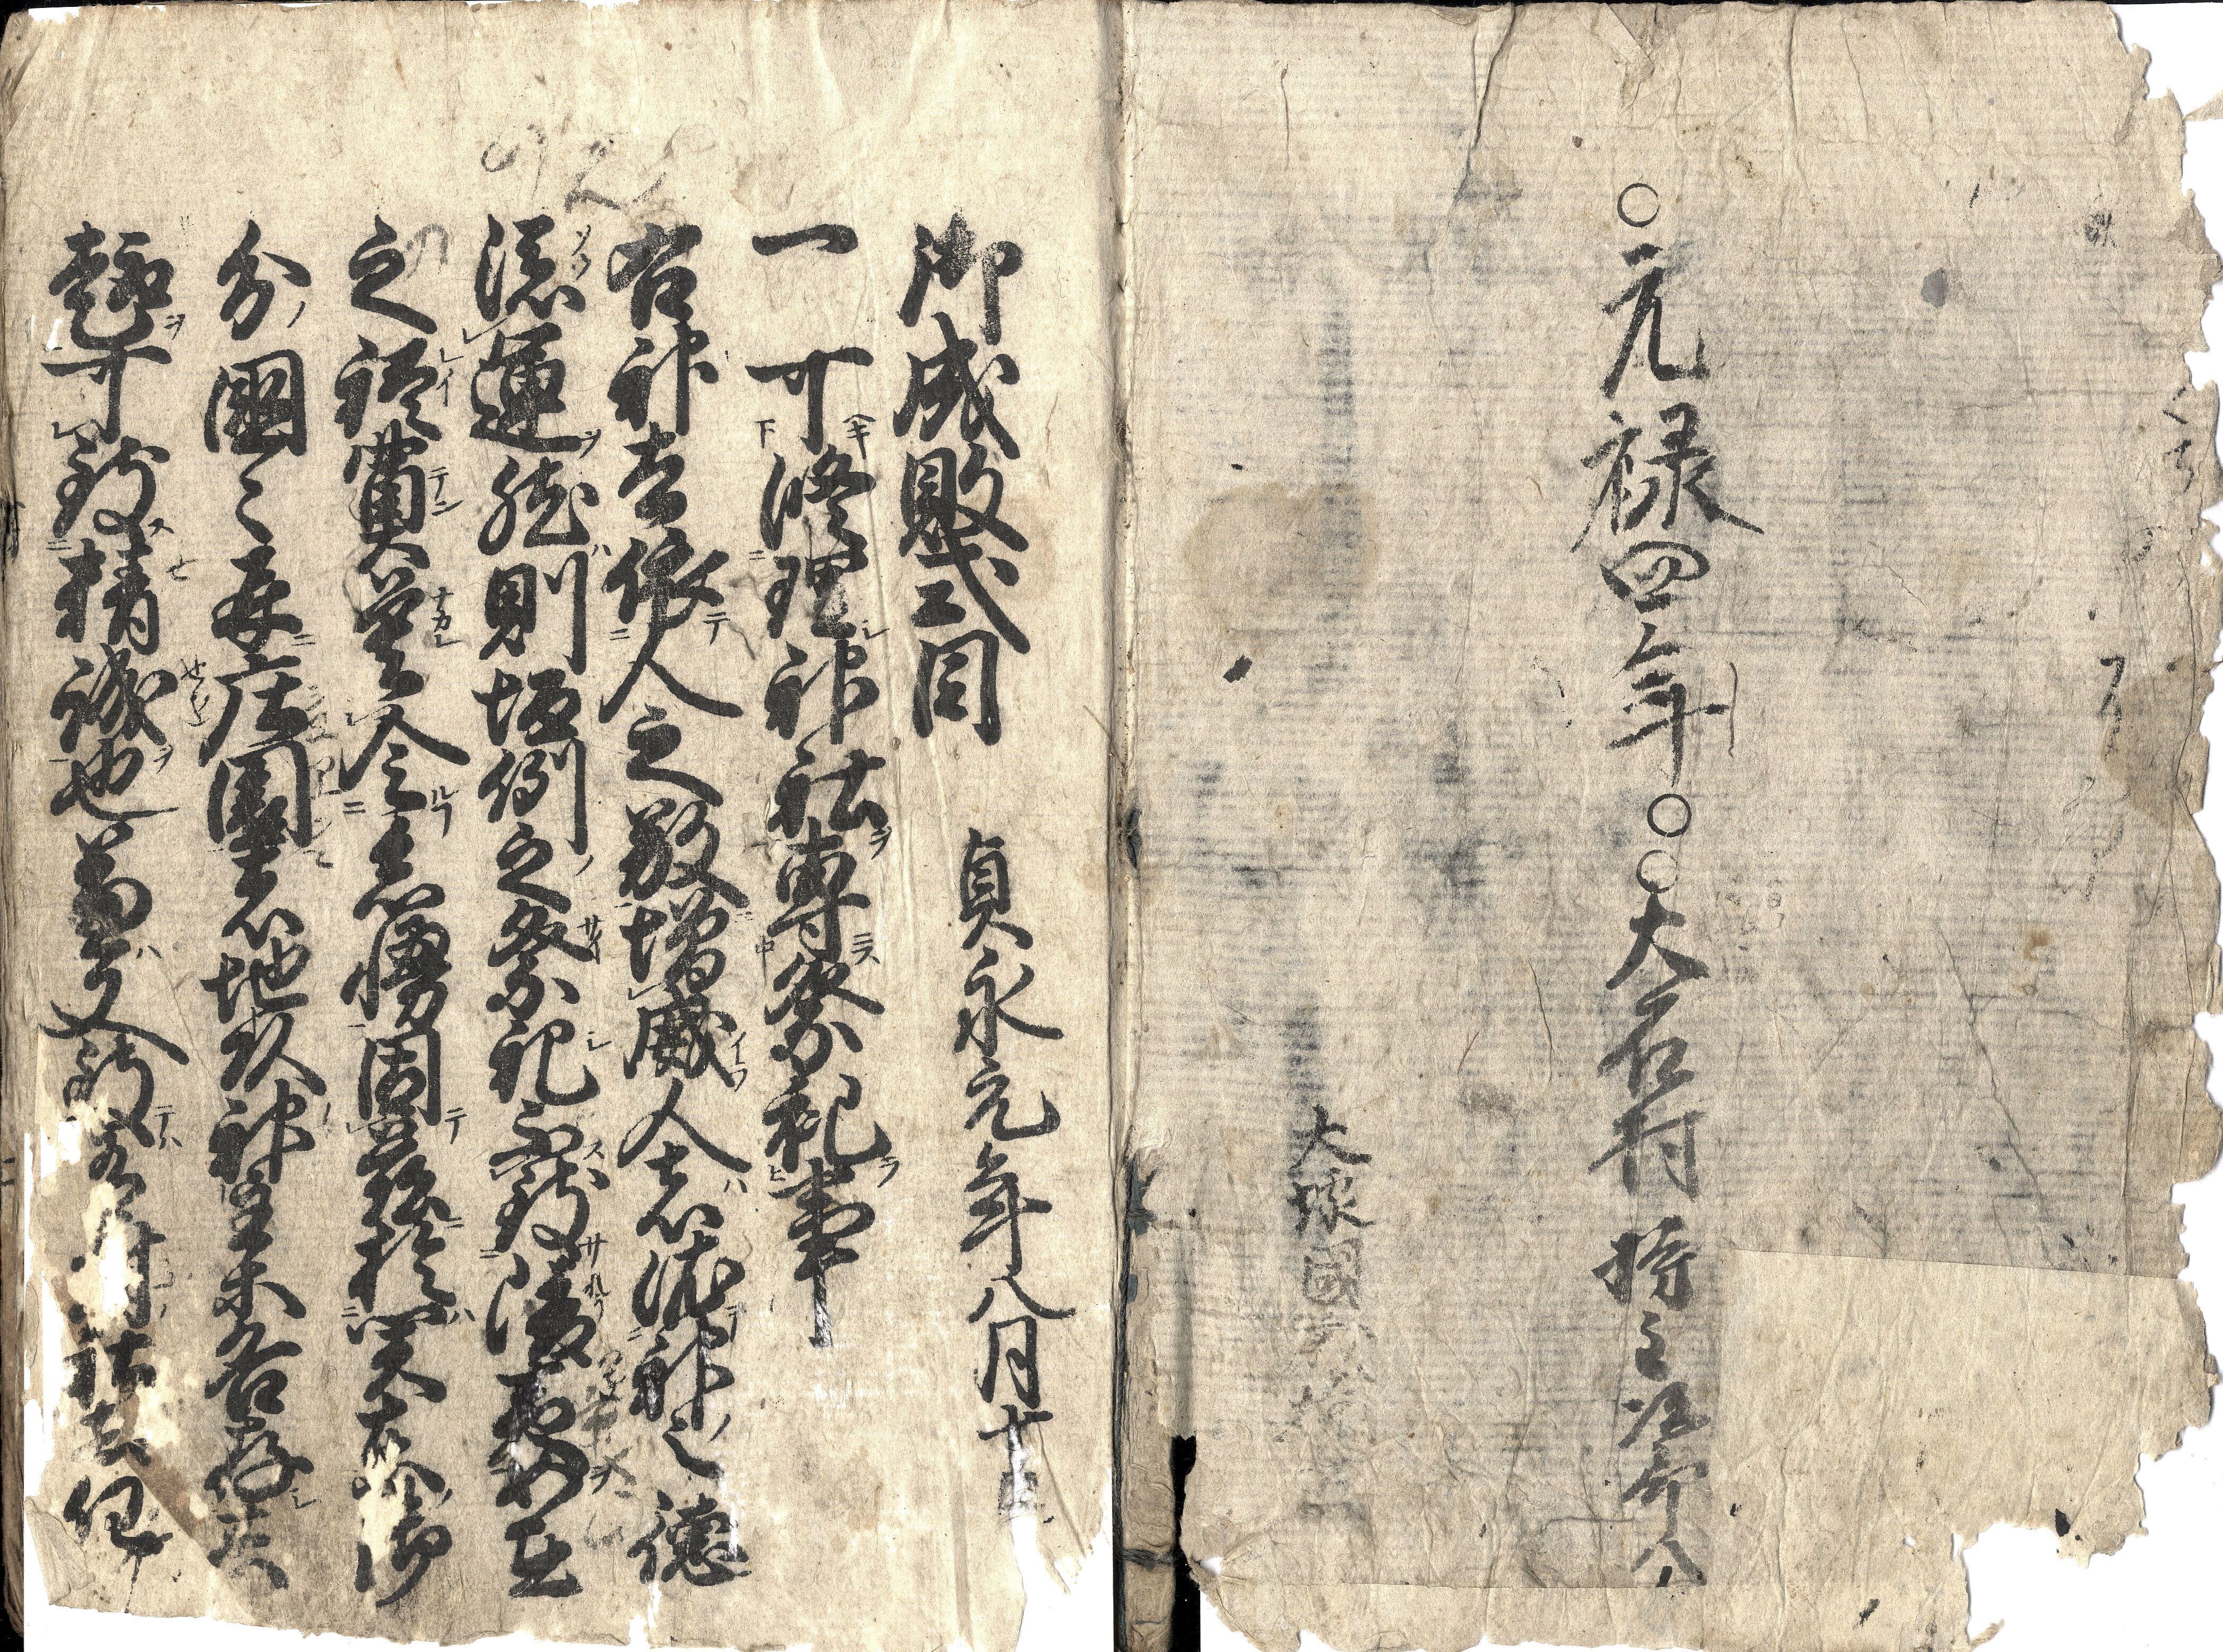 〇元禄四年〇〇大石村 持主
大塚國
御成敗式目 貞永元年八月十
一 可修理神社専祭祀事
右神者依人之敬増威人者依神之徳
添運然則恒例之祭祀不致陵夷如在
之礼奠莫令怠慢因茲於関東御
分國々并庄園者地頭神主等各存其
趣可致精誠也兼又於有封社者任